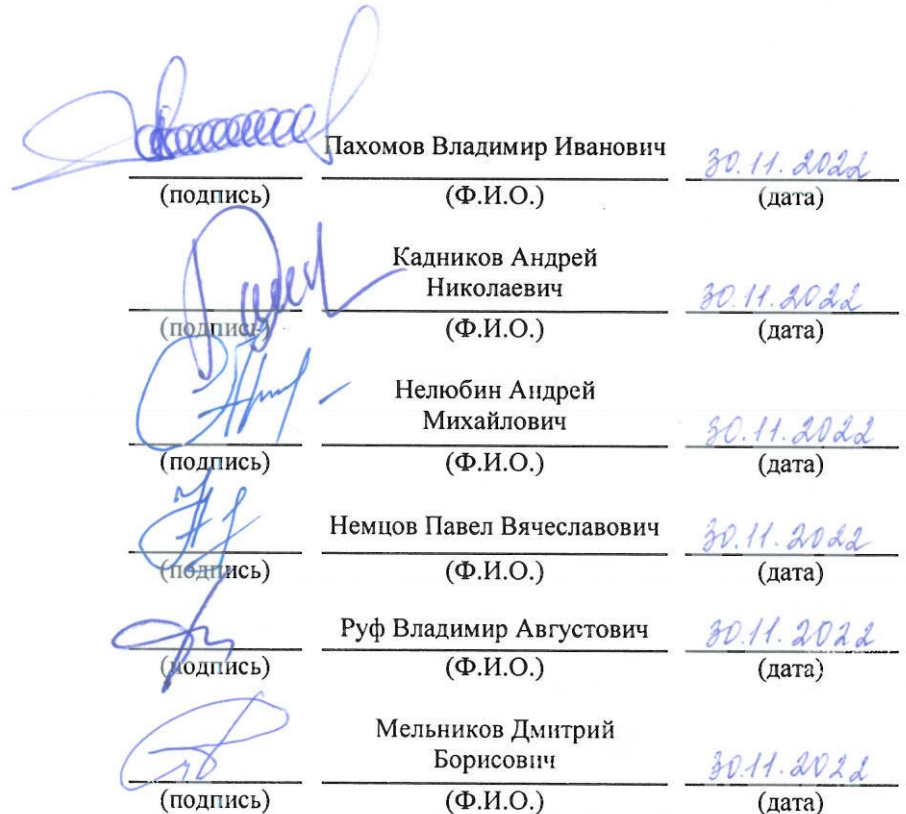 Пахомов Владимир Иванович 30.11.2022
(подпись) (Ф.И.О.) (дата)
Кадников Андрей
Николаевич 30.11.2022
(подпись) (Ф.И.О.) (дата)
Нелюбин Андрей
Михайлович 30.11.2022
(подпись) (Ф.И.О.) (дата)
Немцов Павел Вячеславович 30.11.2022
(подпись) (Ф.И.О.) (дата)
Руф Владимир Августович 30.11.2022
(подпись) (Ф.И.О.) (дата)
Мельников Дмитрий
Борисович 30.11.2022
(подпись) (Ф.И.О.) (дата)